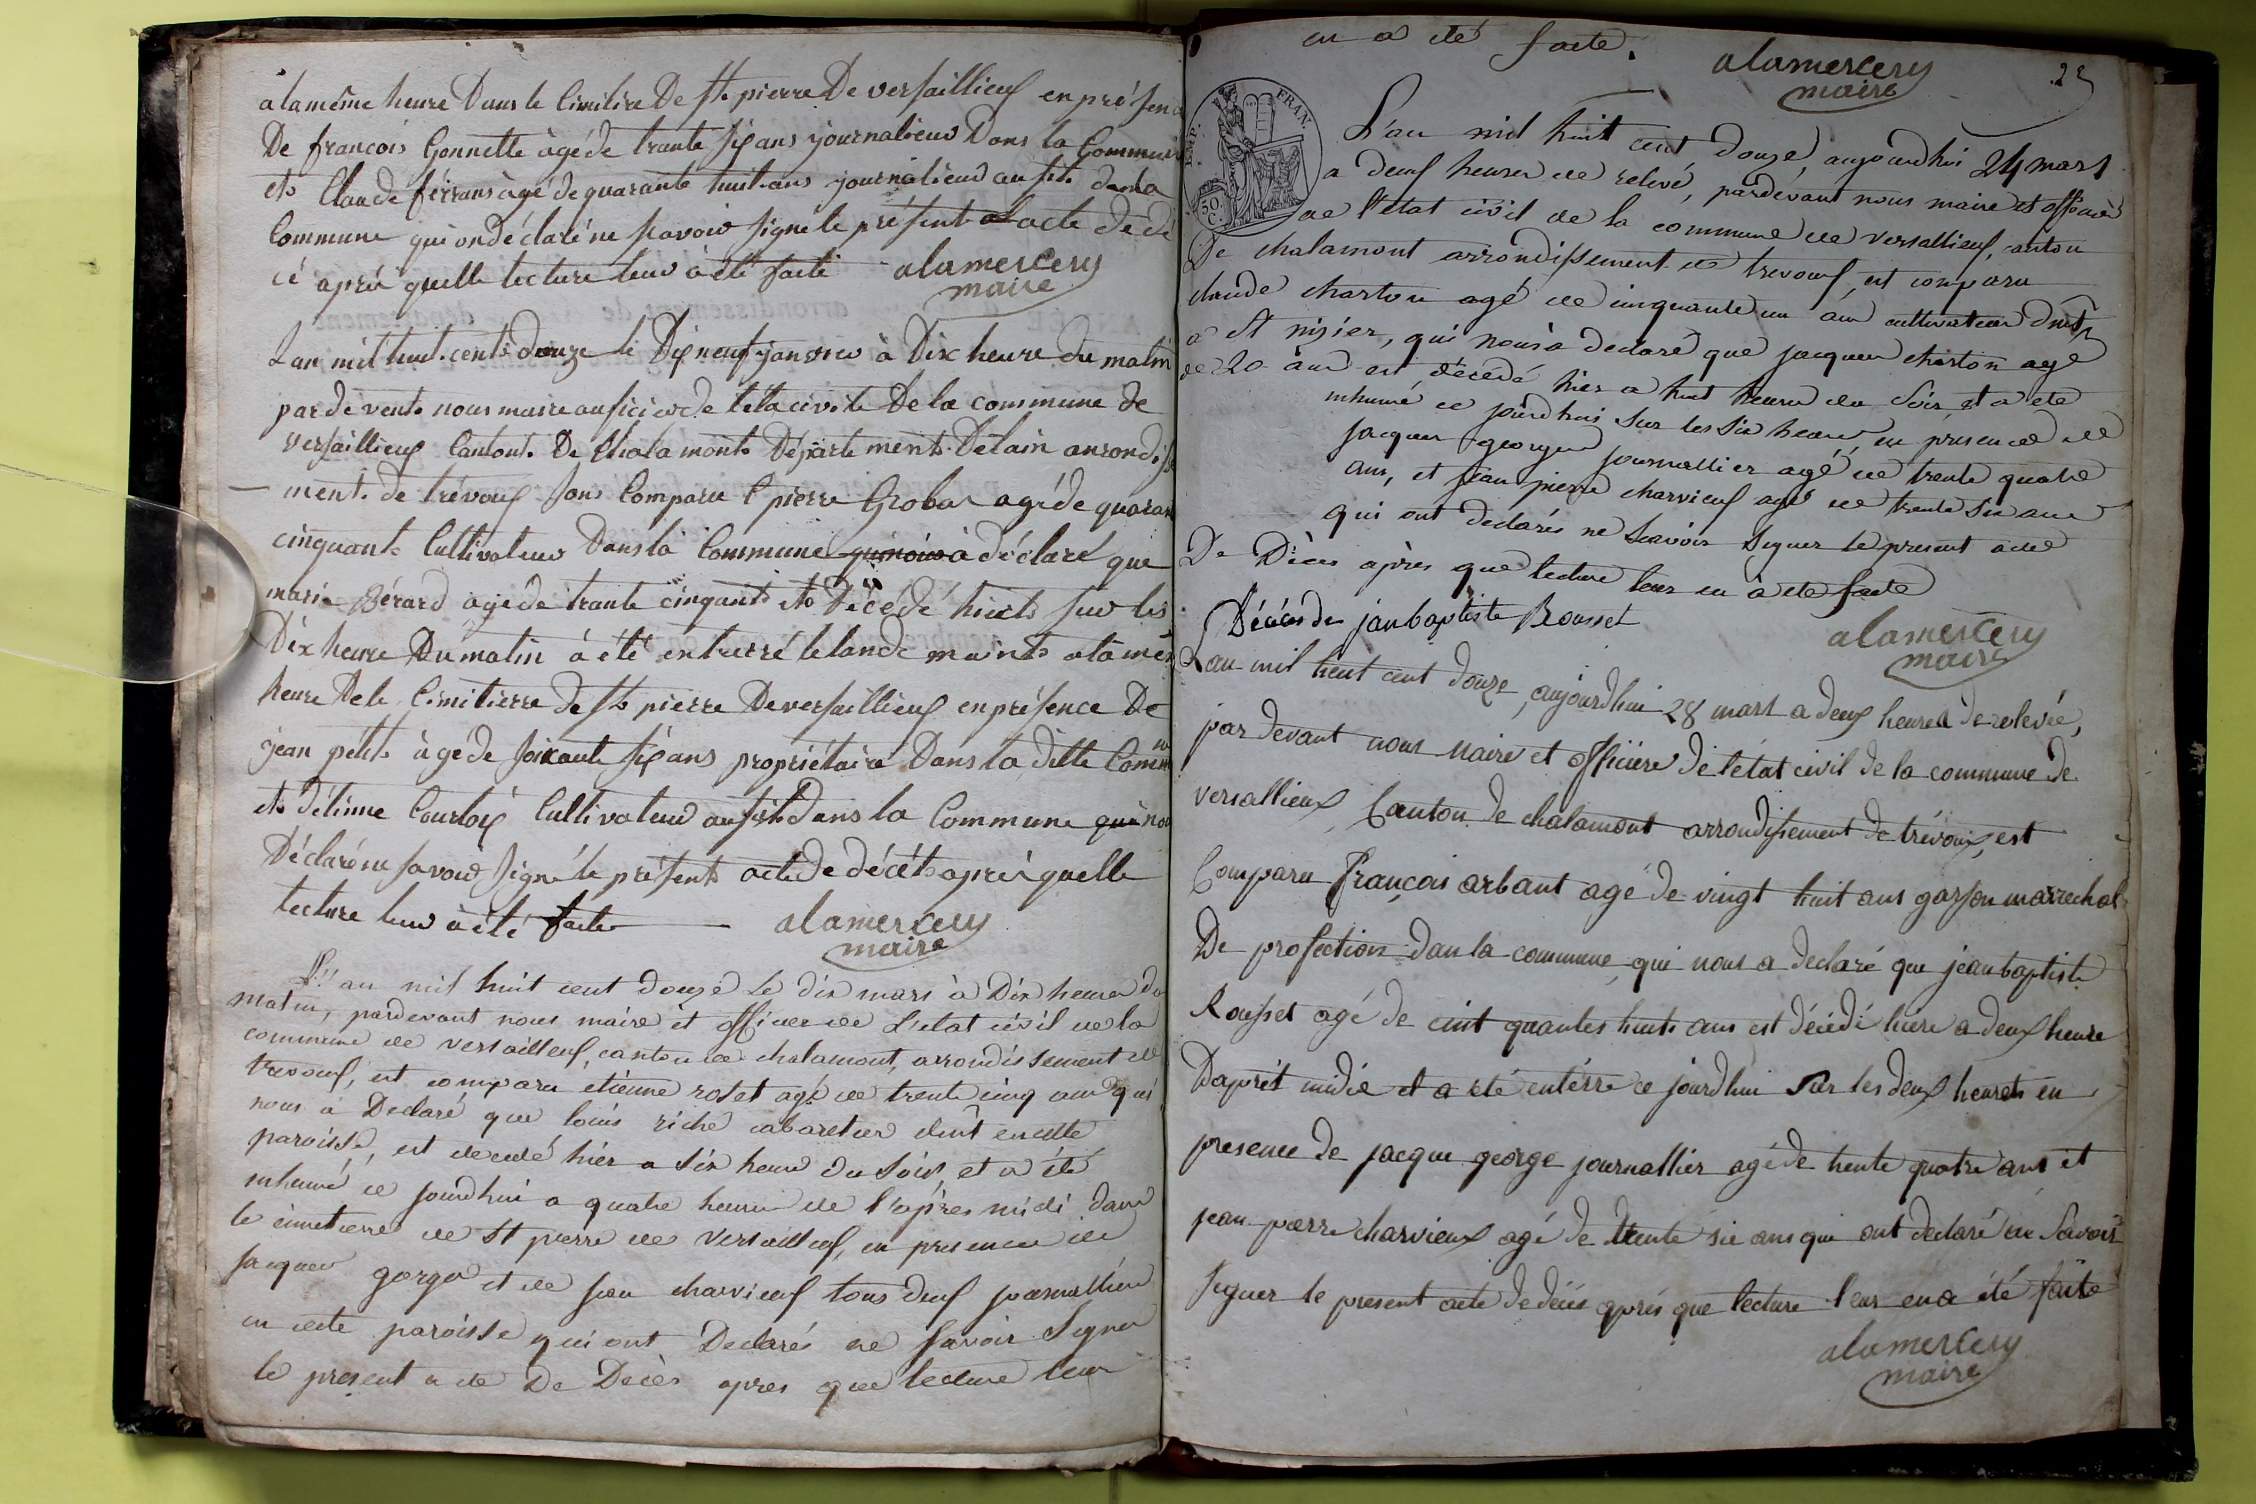 a la même heure Dans le Cimitire De st. pierre De versaillieux en présen
De francois Gonnette àgé de trante six ans journalieur Dans la Commun
et Claude ferrans àgé de quarante huit ans journalieur au sit de la
Commune qui on déclaré ne savoir signé le présent acte de dé
cé après quelle lecture leur à été faite alamercery
maire
Lan mil huit cents douze le Dix neuf janvier à Dix heure du matin
par de vent nous maire auficier de léta civile De la commune de
versaillieux Cantont De Chalamont Département Delain arrondiss
ment de trévoux sons Comparu C pierre Grobas agé de quaran
cinquante Cultivateur Dans la Commune qui nous a déclaré que
marie Bérard agé de trante cinquants et Décédé hierts sur les
Dix heure Du matin à été enterré le lande maints a la mêm
heure De le Cimitierre de st pierre De versaillieux en présence De
jean petit àgé de soixante six ans propriétaire Dans la ditte Comm
et détienne Courtois Cultivateur au sit dans la Commune qui non
Déclaré ne savoir signé le présent acte de décét après quelle
lecture leur à été faite alamercery
maire
L'an mil huit cent douze le dix mars à Dix heures du
matin, pardevant nous maire et officier de L'etat civil de la
commune de versaillieux, canton de chalamont, arrondissement de
trevoux, est comparu étienne rolet agé de trente cinq ans qui
nous à Declaré que louis riche cabaretier dmt en cette
paroisse, est decedé hier a six heure du soir, et a été
inhumé ce jourdhui a quatre heures de l'après midi dans
le cimetierre de st pierre de versaillieux, en presence de
jacques george et de jean charvieux tous deux journallier
en cette paroisse qui ont Declarés ne savoir Signer
le present acte De Decès apres que lecture leur
en a été faite. alamercery
maire
25
TIMP. FRAN.
50 C.
L'an mil huit cent douze, aujourdhui 24 mars
a deux heures de relevé, pardevant nous maire et officier
de l'etat civil de la commune de versallieux, canton
De chalamont arrondissement de trevoux, est comparu
claude charton agé de cinquante un ans cultivateur dmt
a St nizier, qui nous à declaré que jacques charton agé
de 20 ans est décédé hier a huit heures du soir, et a été
inhumé ce jourdhui sur les six heures en presence de
jacques georges journallier agé de trente quatre
ans, et jean pierre charvieux agé de trente six ans
qui ont declarés ne scavoir signer le present acte
De Décès après que lecture leur en à eté faite
alamercery
maire
Décéés de jan baptiste Rousset
Lan mil heut cent douze, aujourdhui 28 mars a deux heures de relevée,
par devant nous Maire et officiere de létat civil de la commune de
versallieux, Canton de chalamont arrondissement de trévoux, est
Comparu François arbant agé de vingt huit ans garson marrechal
De profection dan la commune, qui nous a declaré que jean baptiste
Rousset agé de cint quantes huits ans est décédé hière a deux heure
Daprét midie et a eté entérré ce jourdhui sur les deux heures en
presence de jacque george journallier agé de trente quatre ans et
jean pierre charvieux agé de trente sie ans qui ont declaré ne savoir
signer le present acte de décés aprés que lecture leur en a été faite
alamercery
maire